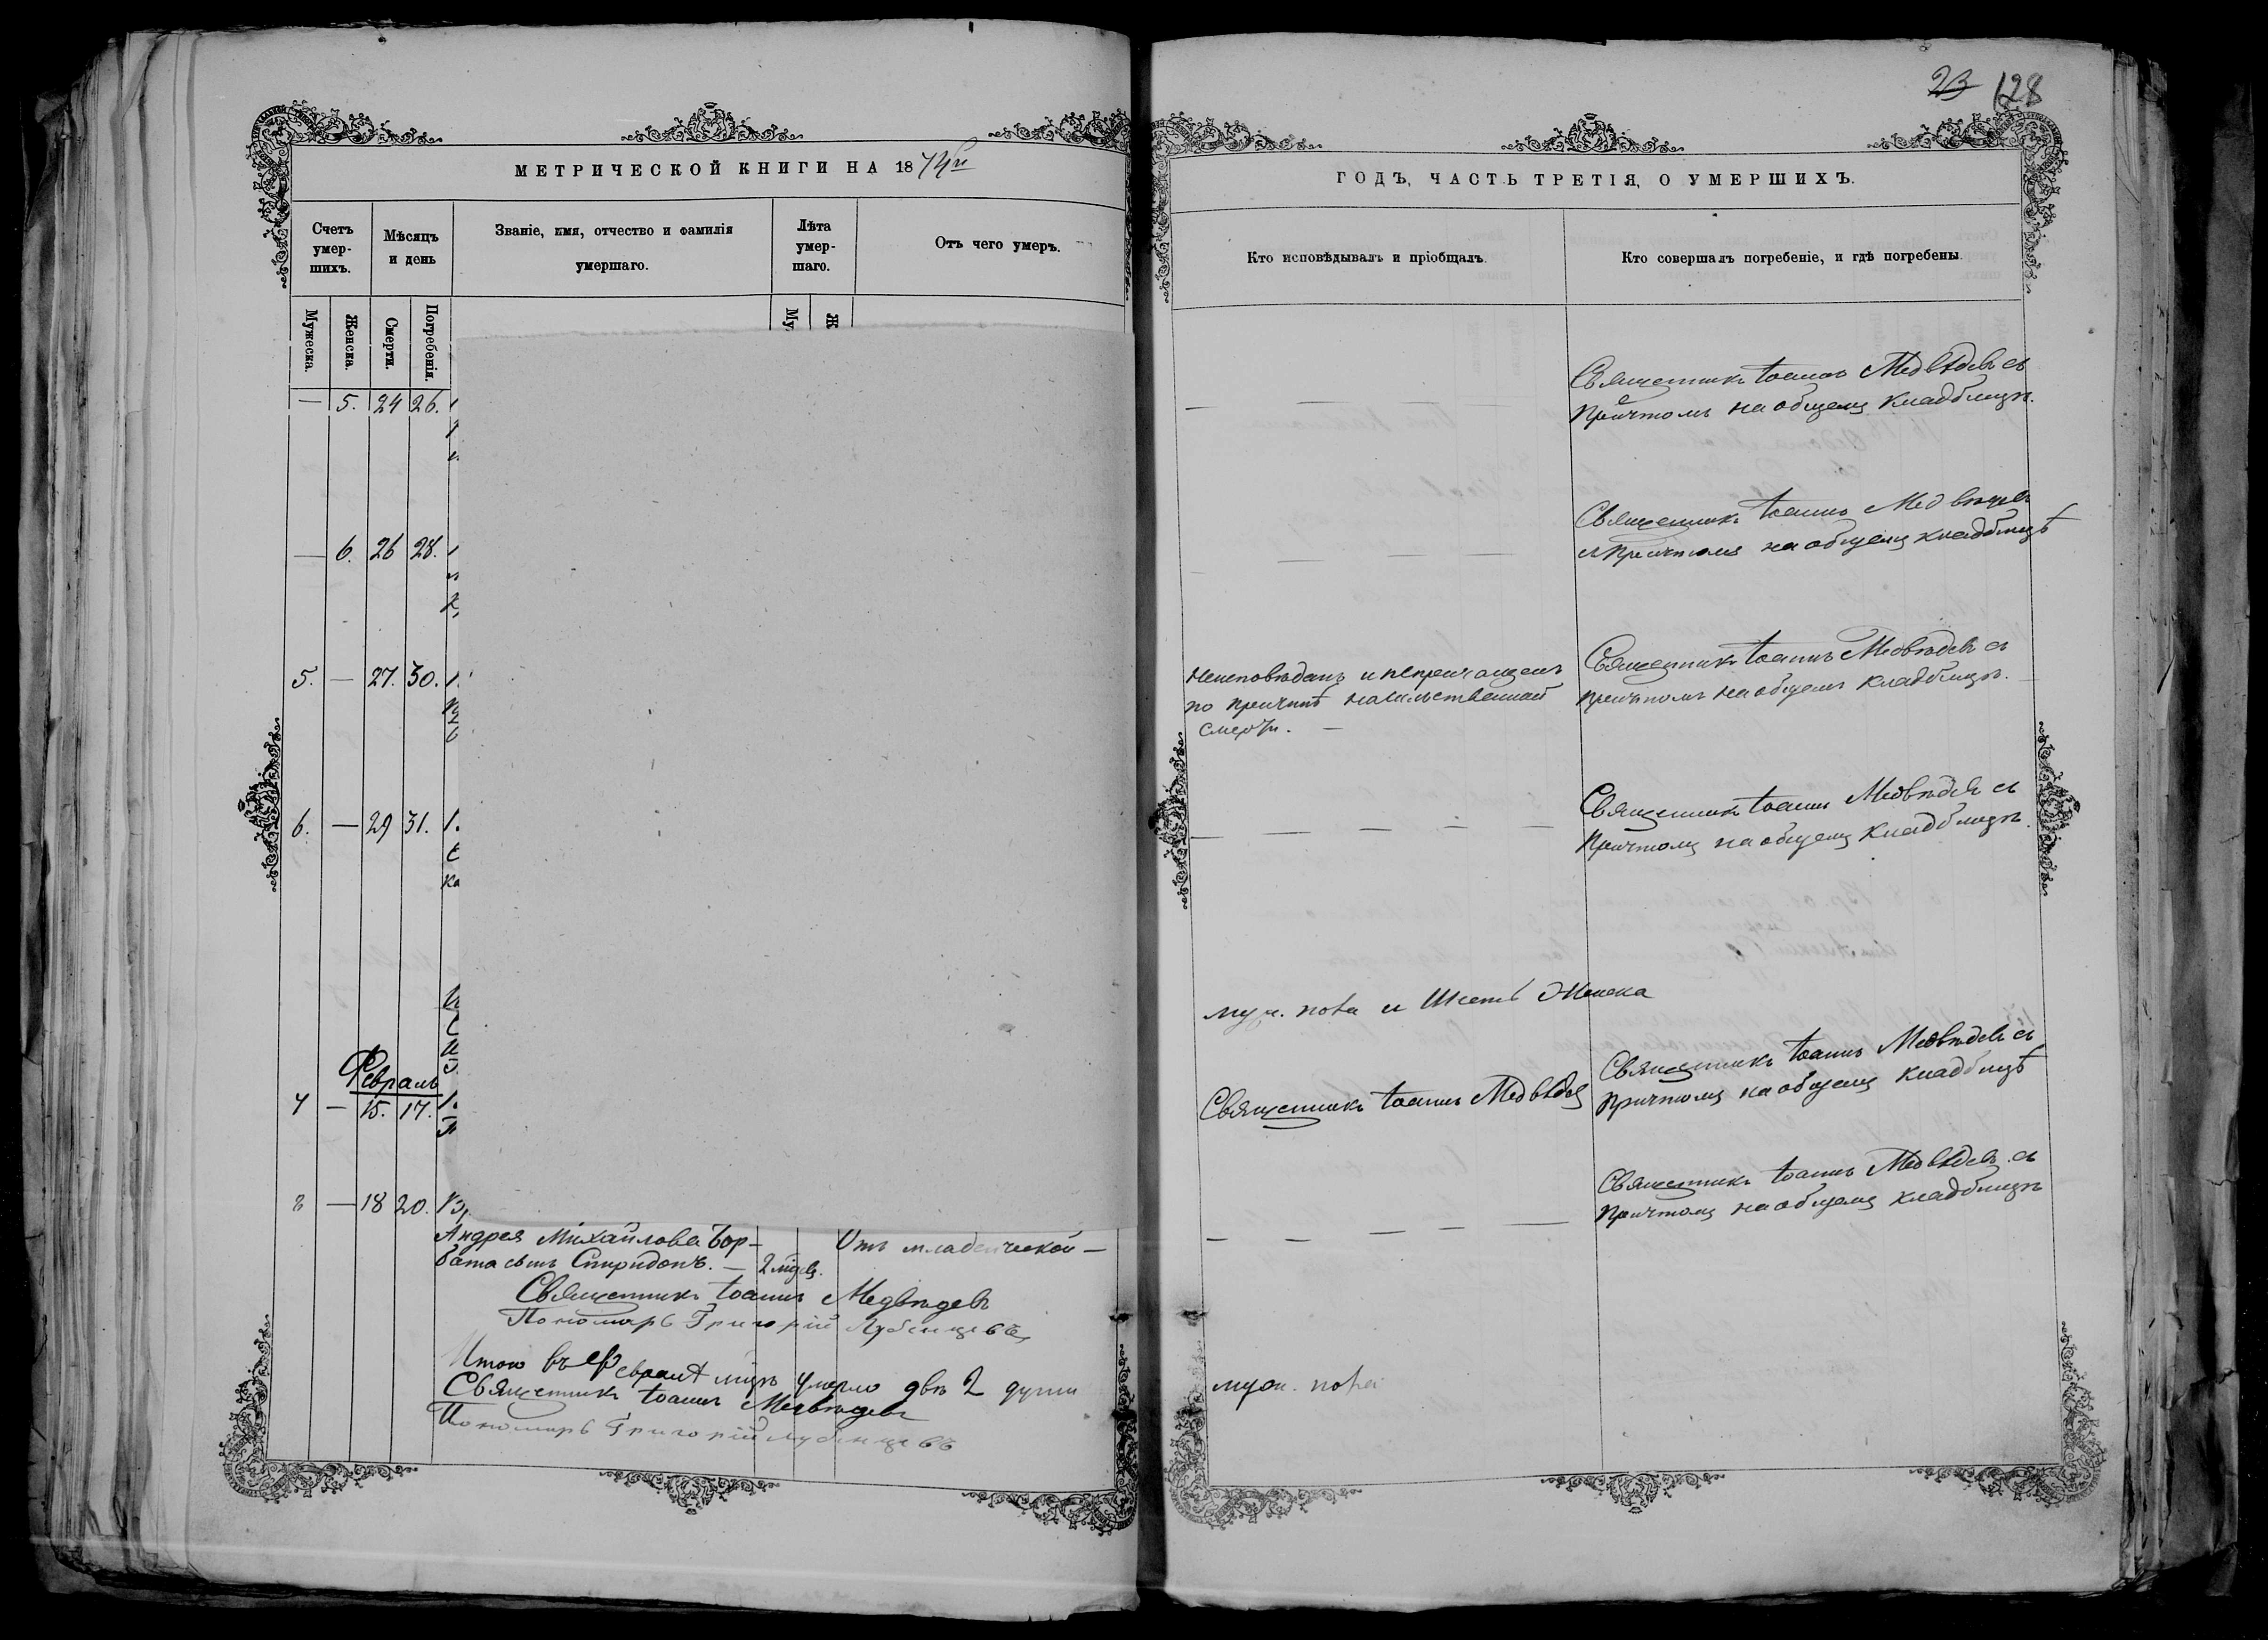 23 128
МЕТРИЧЕСКОЙ КНИГИ НА 18
Счетъ умер-шихъ.
Мѣсяцъ и день
Званіе, имя, отчество и фамилія умершаго.
Лѣта умер-шаго.
Отъ чего умеръ.
Мужеска.
Женска.
Смерти.
Погребенія.
Му
Ж
— 5. 24 26.
— 6. 26 28.
5. — 27. 30.
6. — 29 31.
Февраль
— 15. 17.
8 — 18 20.
Андрея Михайлова Бор-
бата сынъ Спиридонъ. — 2 мѣс.
Отъ младенческой —
Священникъ Іоаннъ Медвѣдевъ
Пономарь Григорій
Итого въ февралѣ мцѣ умерло двѣ 2 души
Священникъ Іоаннъ Медвѣдевъ
Пономарь Григорій
ГОДЪ, ЧАСТЬ ТРЕТІЯ, О УМЕРШИХЪ.
Кто исповѣдывалъ и пріобщалъ.
Кто совершалъ погребеніе, и гдѣ погребены.
Священникъ Іоаннъ Медвѣдевъ съ
Причтомъ на общемъ кладбищѣ.
Священникъ Іоаннъ Медвѣдевъ
съ Причтомъ на общемъ кладбищѣ
Неисповѣданъ и непричащенъ
по причинѣ насильственной
смерти. —
Священникъ Іоаннъ Медвѣдевъ съ
причтомъ на общемъ кладбищѣ.
Священникъ Іоаннъ Медвѣдевъ съ
Причтомъ на общемъ кладбищѣ.
муж. пола и шесть женска
Священникъ Іоаннъ Медвѣдев
Священникъ Іоаннъ Медвѣдевъ съ
причтомъ на общемъ кладбищѣ
Священникъ Іоаннъ Медвѣдевъ съ
Причтомъ на общемъ кладбищѣ
муж. пола